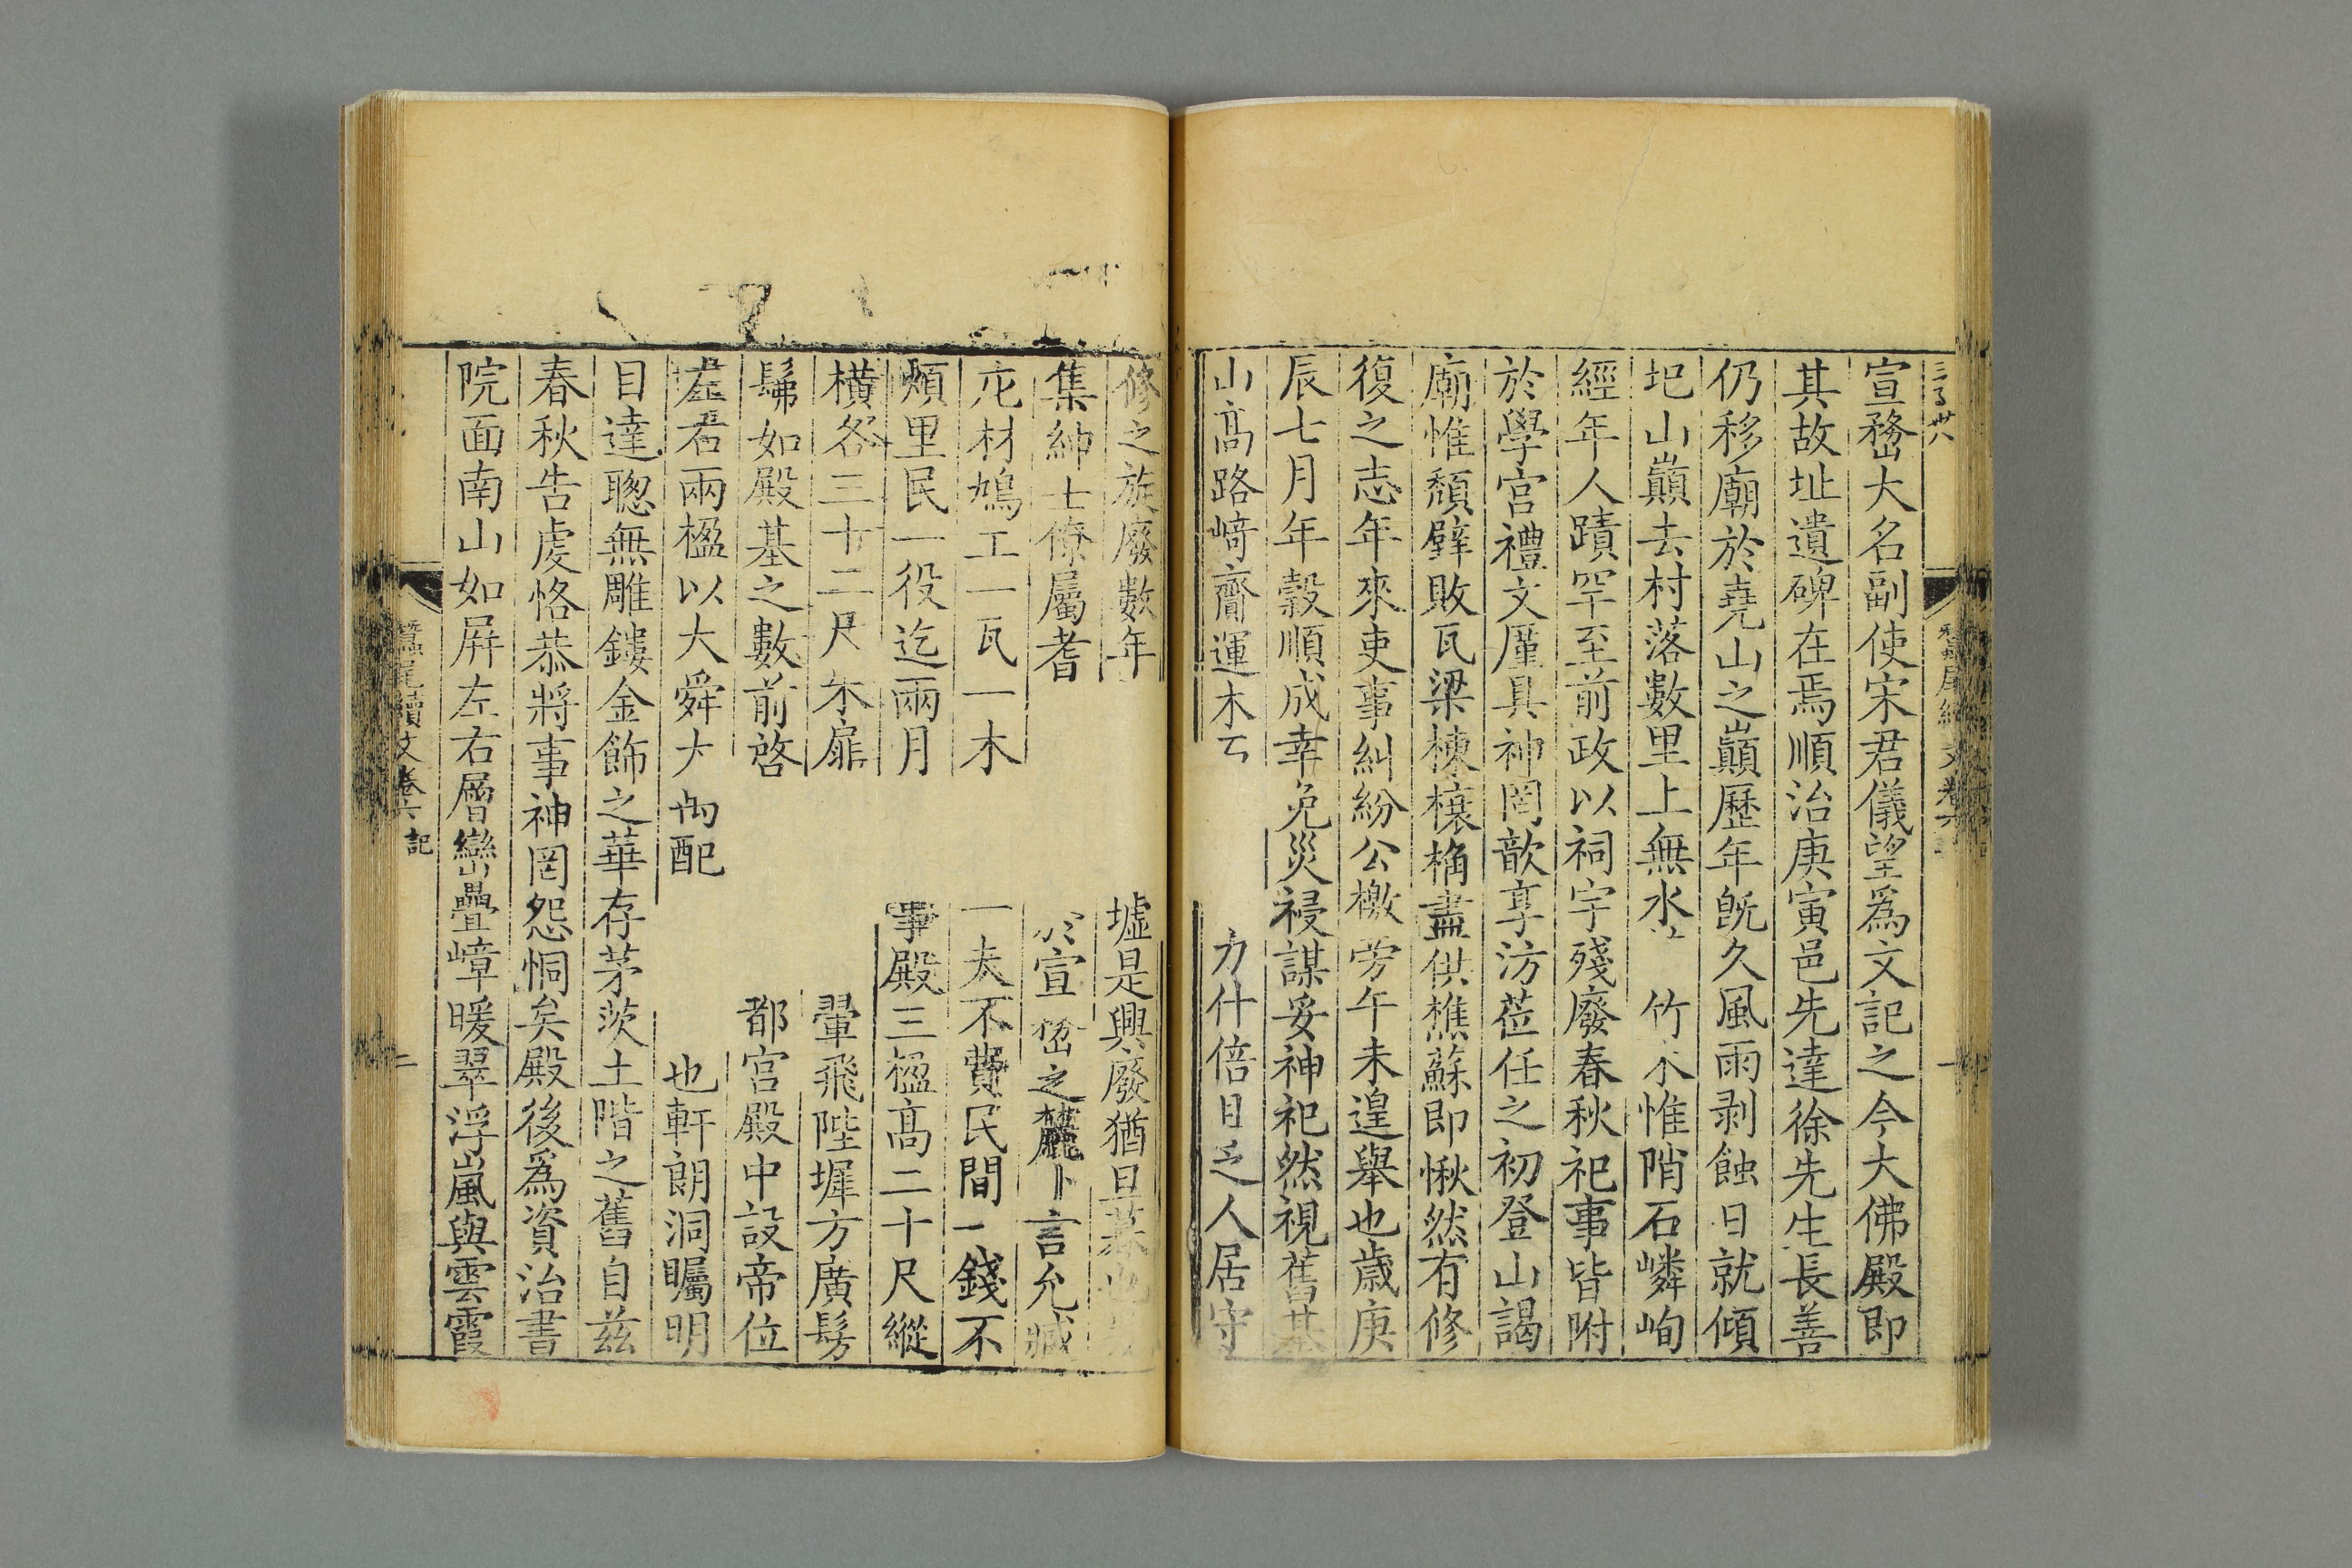 宣務大名副使宋君儀望爲文記之今大佛殿即
其故址遺碑在焉順治庚寅邑先達徐先生長善
仍移廟於堯山之巔歷年旣久風雨剥蝕日就傾
圯山巔去村落數里上無水 竹木惟陗石嶙峋
經年人蹟罕至前政以祠宇殘廢春秋祀事皆附
於學宮禮文厪具神罔歆享汸莅任之初登山謁
廟惟頹壁敗瓦梁棟榱桷盡供樵蘇即愀然有修
復之志年來吏事糾紛公檄旁午未遑舉也歳庚
辰七月年穀順成幸免災祲謀妥神祀然視舊基
山高路﨑齎運木 力什倍日乏人居守
修之旋廢數年 墟是興廢猶旦暮
集紳士僚屬耆 於宣務之麓卜言允臧
庀材鳩工一瓦一木 一夫不費民間一錢不
煩里民一役迄兩月 事殿三楹高二十尺縱
橫各三十二尺朱扉 翬飛陛墀方廣髣
髴如殿基之數前啓 都宮殿中設帝位
左右兩楹以大舜大 配 也軒朗洞矚明
目達聰無雕鏤金飾之華存茅茨土階之舊自茲
春秋告虔恪恭將事神罔怨恫矣殿後爲資治書
院面南山如屛左右層巒疊嶂暖翠浮嵐與雲霞
蠶尾續文卷六 記 二